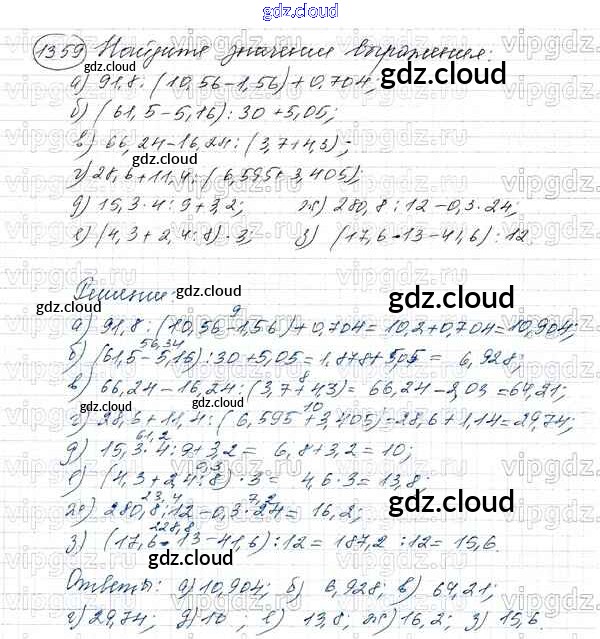 gdz.cloud
1359 Найдите значения выражения:
а) 91,8 : (10,56 – 1,56) + 0,704;
gdz.cloud
б) (61,5 – 5,16) : 30 + 5,05;
в) 66,24 – 16,24 : (3,7 + 4,3);
gdz.cloud
gdz.cloud
г) 28,6 + 11,4 : (6,595 + 3,405);
д) 15,3 · 4 : 9 + 3,2; ж) 280,8 : 12 – 0,3 · 24;
gdz.cloud
е) (4,3 + 2,4 : 8) · 3; з) (17,6 · 13 – 41,6) : 12.
Решение:
gdz.cloud
gdz.cloud
9
а) 91,8 : (10,56 – 1,56) + 0,704 = 10,2 + 0,704 = 10,904;
56,34
б) (61,5 – 5,16) : 30 + 5,05 = 1,878 + 5,05 = 6,928;
gdz.cloud
8
в) 66,24 – 16,24 : (3,7 + 4,3) = 66,24 – 2,03 = 64,21;
10
г) 28,6 + 11,4 : (6,595 + 3,405) = 28,6 + 1,14 = 29,74;
61,2
д) 15,3 · 4 : 9 + 3,2 = 6,8 + 3,2 = 10;
0,3
е) (4,3 + 2,4 : 8) · 3 = 4,6 · 3 = 13,8;
gdz.cloud
23,4 7,2
ж) 280,8 : 12 – 0,3 · 24 = 16,2;
228,8
з) (17,6 · 13 – 41,6) : 12 = 187,2 : 12 = 15,6.
gdz.cloud
Ответы: а) 10,904; б) 6,928; в) 64,21;
г) 29,74; д) 10, е) 13,8; ж) 16,2; з) 15,6.
gdz.cloud
vipgdz.ru